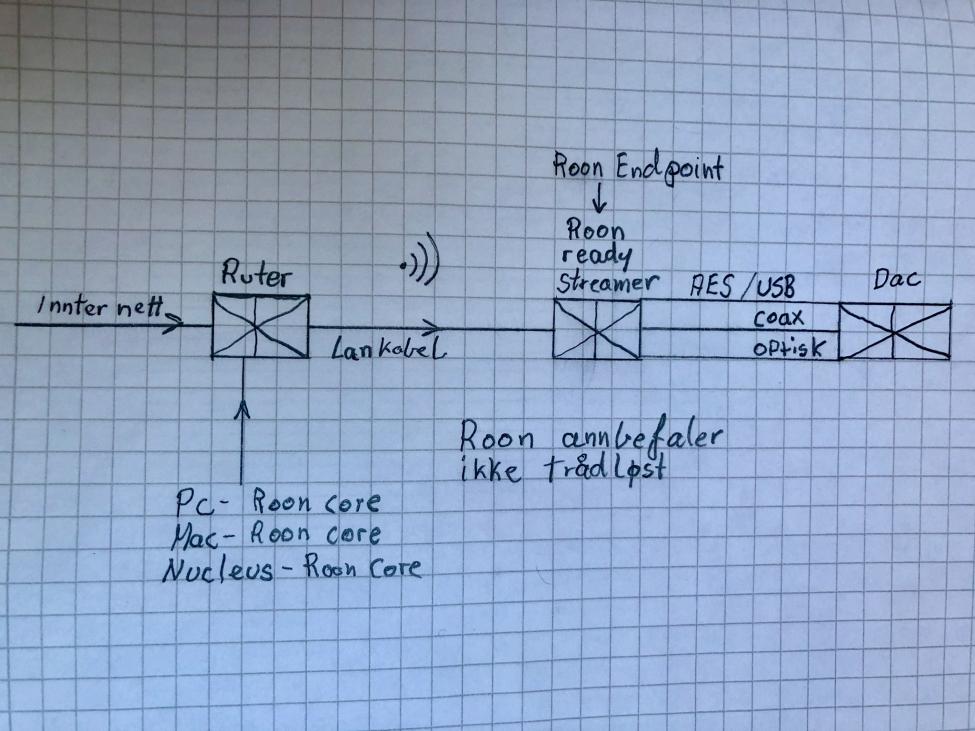 Roon Endpoint
Roon
ready
streamer
Ruter
AES/USB
Dac
Innter nett
coax
Lankabel
optisk
Roon annbefaler
ikke trådløst
Pc- Roon core
Mac- Roon core
Nucleus - Roon Core